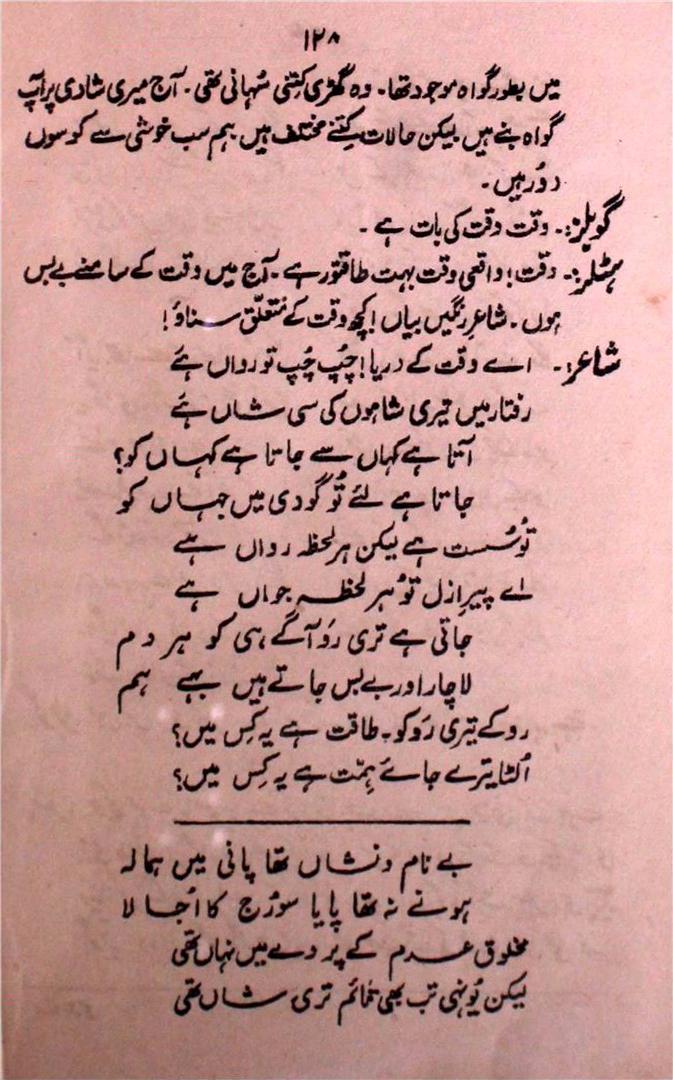 ۱۲۸
میں بطور گواہ موجود تھا۔ وہ گھڑی کتنی سُہانی تھی۔ آج میری شادی پر آپ
گواہ بنے ہیں لیکن حالات کِتنے مختلف ہیں ہم سب خوشی سے کوسوں
دُور ہیں۔
گوبلز:۔ وقت وقت کی بات ہے ۔
ہٹلر:۔ وقت! واقعی وقت بہت طاقتور ہے۔ آج میں وقت کے سامنے بے بس
ہوں۔ شاعرِ رنگیں بیاں! کچھ وقت کے متعلّق سناؤ!
شاعر:۔ اے وقت کے دریا! چُپ چُپ تو رواں ہے
رفتار میں تیری شاہوں کی سی شاں ہے
آتا ہے کہاں سے جاتا ہے کہاں کو؟
جاتا ہے لئے تُو گودی میں جہاں کو
تُو سُست ہے لیکن ہر لحظہ رواں ہے
اے پیرِ ازل تُو ہر لحظہ جواں ہے
جاتی ہے تری رَو آگے ہی کو ہر دم
لاچار اور بے بس جاتے ہیں بہے ہم
روکے تیری رَو کو۔ طاقت ہے یہ کِس میں؟
اُلٹا یترے جائے ہِمّت ہے یہ کِس میں؟
بے نام و نشاں تھا پانی میں ہمالہ
ہونے نہ تھا پایا سوُرج کا اُجالا
مخلوق عدم کے پردے میں نہاں تھی
لیکن یُونہی تب بھی قائم تری شاں تھی